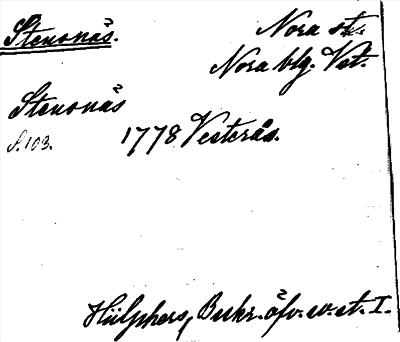 Stenonäs.
Nora sk.
Nora blg. Vst.
Stenonäs
S. 103.
1778 Vesterås.
Hülphers, Beskr. öfv. sv. st. I.